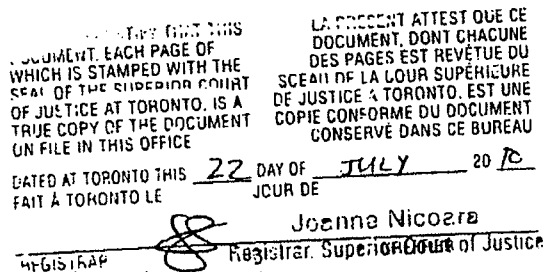 THIS
DOCUMENT, EACH PAGE OF
WHICH IS STAMPED WITH THE
SEAL OF THE SUPERIOR COURT
OF JUSTICE AT TORONTO, IS A
TRUE COPY OF THE DOCUMENT
ON FILE IN THIS OFFICE
LA PRESENT ATTEST QUE CE
DOCUMENT, DONT CHACUNE
DES PAGES EST REVÊTUE DU
SCEAU DE LA COUR SUPÉRIEURE
DE JUSTICE À TORONTO, EST UNE
COPIE CONFORME DU DOCUMENT
CONSERVÉ DANS CE BUREAU
DATED AT TORONTO THIS 22 DAY OF JULY 20 10
FAIT À TORONTO LE JOUR DE
Joanne Nicoara
REGISTRAR Registrar, Superior Court of Justice